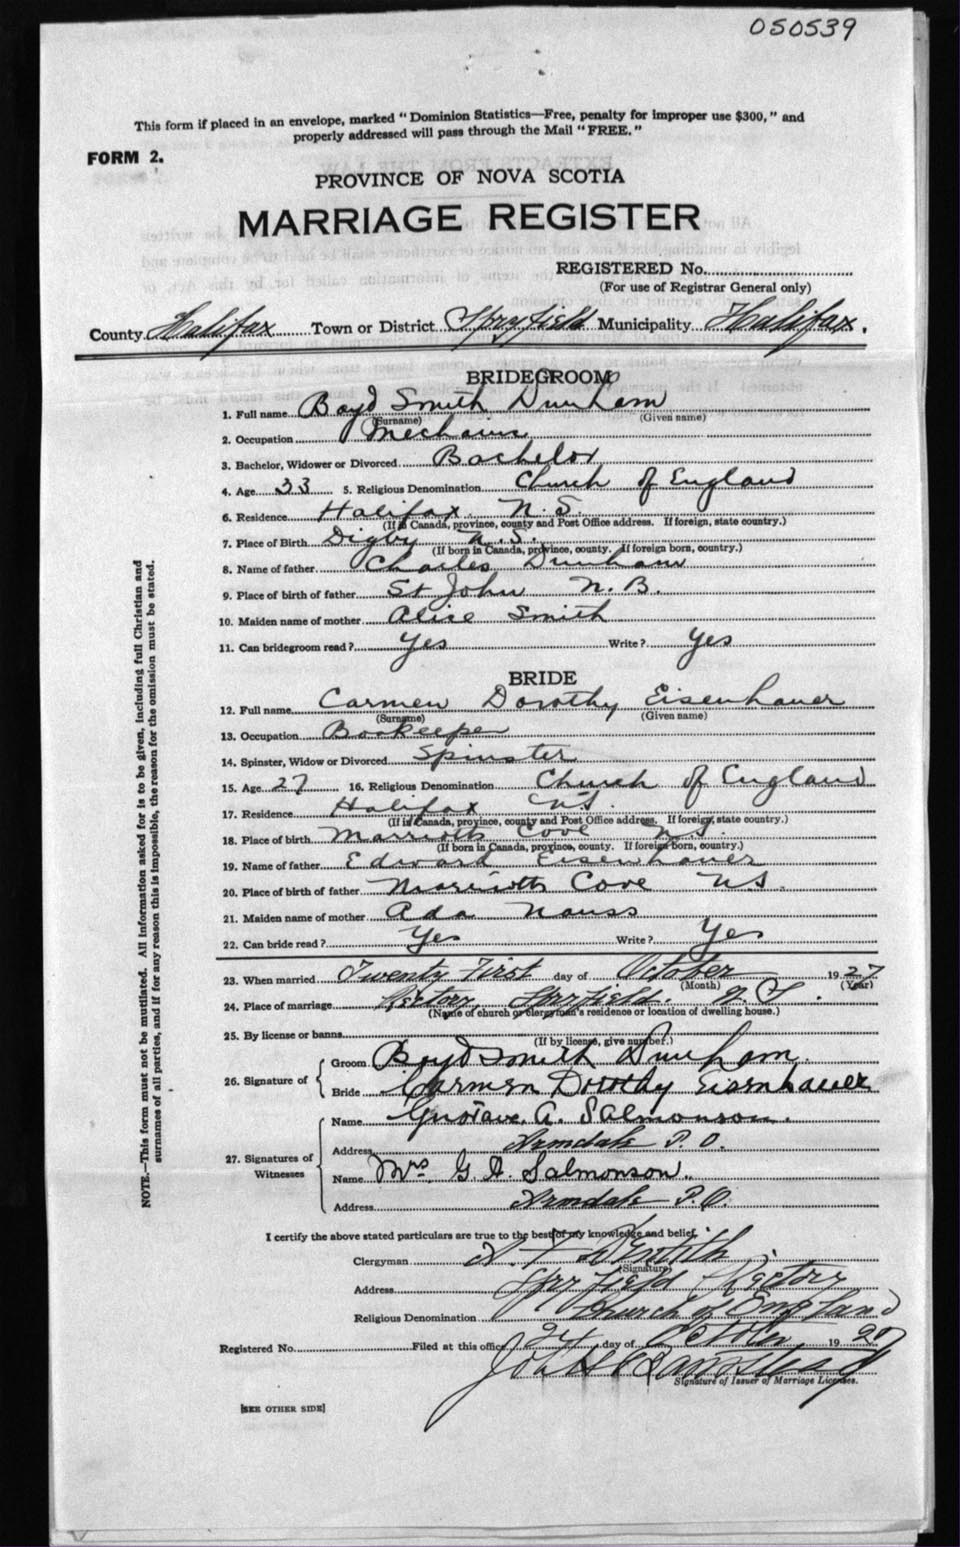 050539
This form if placed in an envelope, marked "Dominion Statistics—Free, penalty for improper use $300," and
properly addressed will pass through the Mail "FREE."
FORM 2.
PROVINCE OF NOVA SCOTIA
MARRIAGE REGISTER
REGISTERED No.
(For use of Registrar General only)
County Halifax Town or District Spryfield Municipality Halifax.
BRIDEGROOM
1. Full name Boyd Smith Dunham
(Surname) (Given name)
2. Occupation Mechanic
3. Bachelor, Widower or Divorced Bachelor
4. Age 33 5. Religious Denomination Church of England
6. Residence Halifax N.S.
(If in Canada, province, county and Post Office address. If foreign, state country.)
7. Place of Birth Digby N.S.
(If born in Canada, province, county. If foreign born, country.)
8. Name of father Charles Dunham
9. Place of birth of father St John N.B.
10. Maiden name of mother Alice Smith
11. Can bridegroom read? Yes Write? Yes
BRIDE
12. Full name Carmen Dorothy Eisenhauer
(Surname) (Given name)
13. Occupation Bookeeper
14. Spinster, Widow or Divorced Spinster
15. Age 27 16. Religious Denomination Church of England
17. Residence Halifax NS.
(If in Canada, province, county and Post Office address. If foreign, state country.)
18. Place of birth Marrioths Cove NS.
(If born in Canada, province, county. If foreign born, country.)
19. Name of father Edward Eisenhauer
20. Place of birth of father Marrioths Cove NS.
21. Maiden name of mother Ada Nauss
22. Can bride read? Yes Write? Yes
23. When married Twenty First day of October 1927
(Month) (Year)
24. Place of marriage Rectory, Spryfield. N.S.
(Name of church or clergyman's residence or location of dwelling house.)
25. By license or banns
(If by license, give number.)
26. Signature of
Groom Boyd Smith Dunham.
Bride Carmen Dorothy Eisenhauer
27. Signatures of Witnesses
Name Gustave. A. Salmonson.
Address Armdale P.O.
Name Mrs. G. A. Salmonson.
Address Armdale P.O.
I certify the above stated particulars are true to the best of my knowledge and belief.
Clergyman
(Signature)
Address Spryfield Rectory
Religious Denomination Church of England
Registered No. Filed at this office 24 day of October 1927
Signature of Issuer of Marriage Licenses.
[SEE OTHER SIDE]
NOTE.—This form must not be mutilated. All information asked for is to be given, including full Christian and
surnames of all parties, and if for any reason this is impossible, the reason for the omission must be stated.